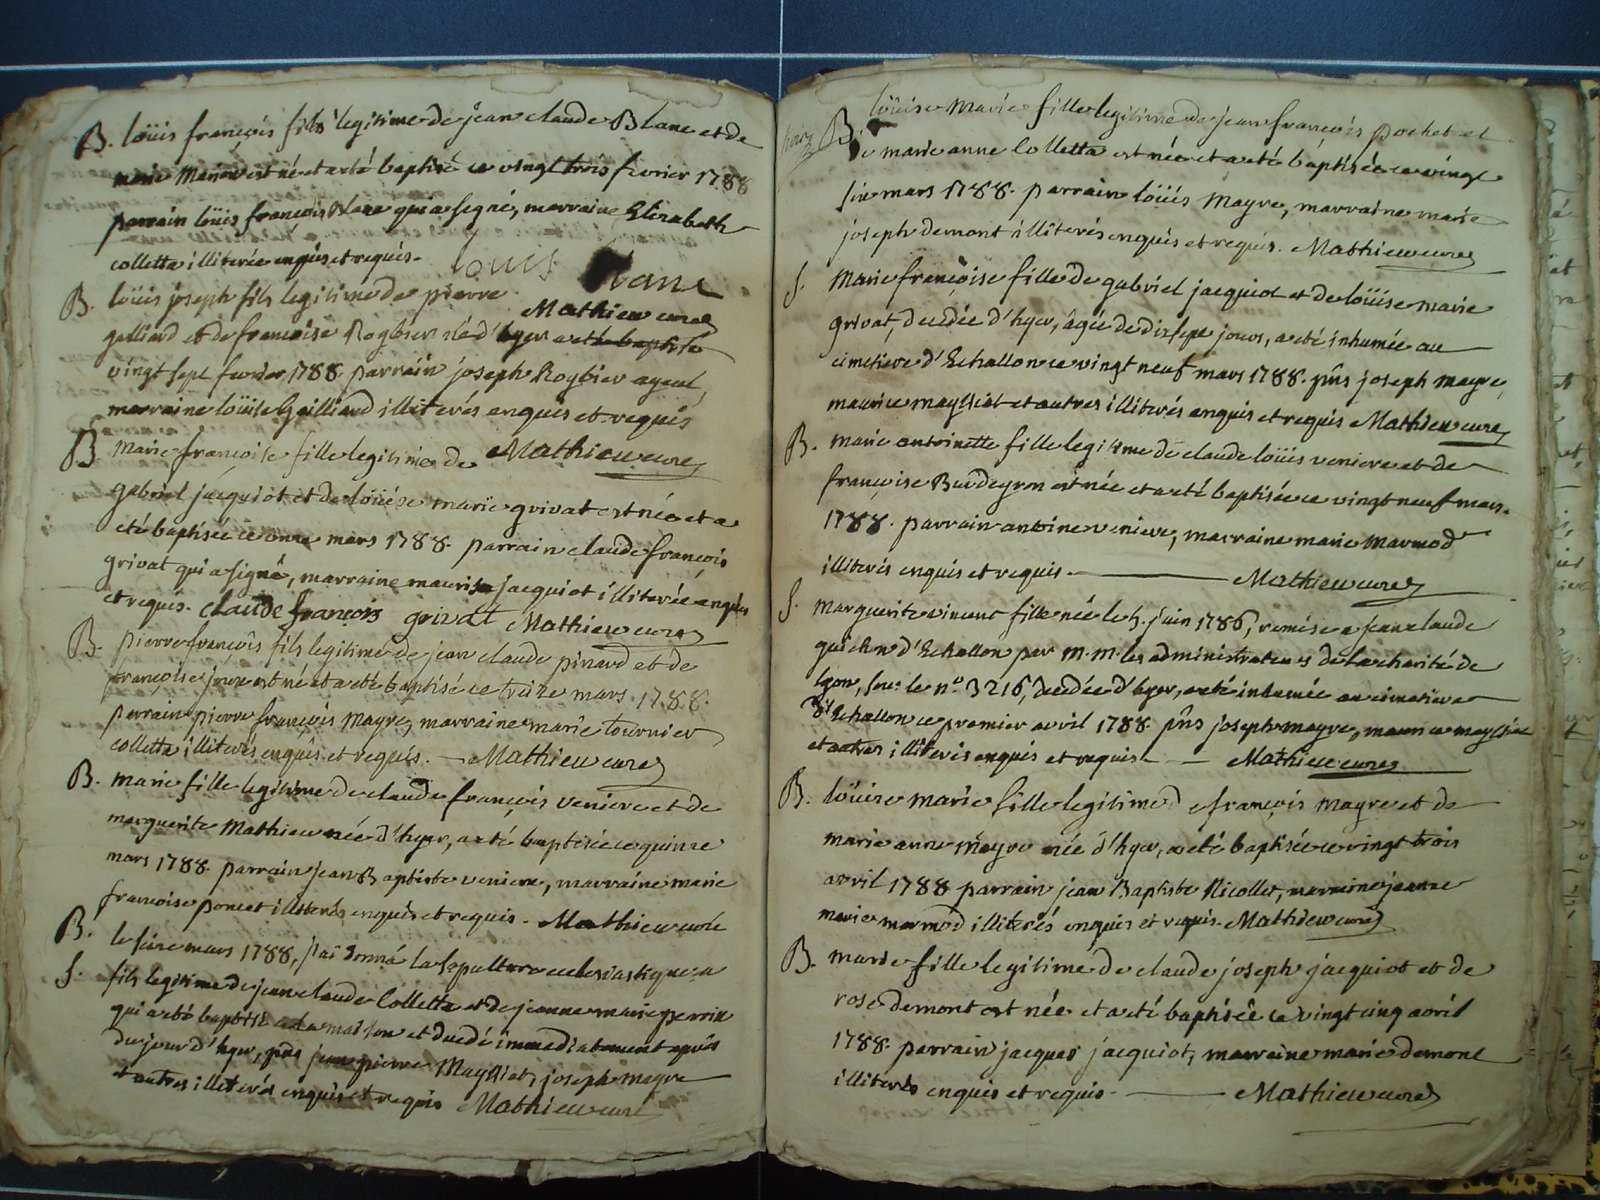 B. loüis françois fils legitime de jean claude Blanc et de
marie Manier est né et a eté baptisé ce vingt trois fevrier 1788
parrain loüis françois Blanc qui a signé, marraine Elizabeth
colletta illiterée enquis et requis.
louis blanc
Mathieu curé
B. loüis joseph fils legitime de pierre
galliard et de francoise Rogbier né d'hyer a eté baptisé
vingt sept fevrier 1788. parrain joseph Rogbier ayeul,
marraine loüise Gailliard illiterés enquis et requis
Mathieu curé
B. Marie françoise fille legitime de
gabriel jacquiot et de loüise marie grivat est née et a
eté baptisée ce onze mars 1788. parrain claude françois
grivat qui a signé, marraine maurise jacquiot illiterée enquis
et requis. claude françois grivat Mathieu curé
B. pierre françois fils legitime de jean claude pinard et de
françoise est né et a eté baptisé ce treize mars 1788.
parrain pierre françois mayre, marraine marie tournier
colletta illiterés enquis et requis. Mathieu curé
B. marie fille legitime de claude françois veniere et de
marguerite Mathieu née d'hyer, a eté baptisée ce quinze
mars 1788. parrain jean Baptiste veniere, marraine marie
francoise poncet illiterés enquis et requis. Mathieu curé
B. le seize mars 1788, j'ai donné la sepulture ecclesiastique a
S. fils legitime de jean claude Colletta et de jeanne marie perrin
qui a eté baptisé a la maison et decedé immediatement après
du jour d'hyer, pñs jean pierre Maysiat, joseph mayre
et autres illiterés enquis et requis Mathieu curé
B. loüise Marie fille legitime de jean françois pochet et
de marie anne Colletta est née et a eté baptisée ce vingt
six mars 1788. parrain loüis Mayre, marraine marie
joseph demont illiterés enquis et requis. Mathieu curé
S. Marie françoise fille de gabriel jacquiot et de loüise marie
grivat, decedée d'hyer, âgée de dix sept jours, a eté inhumée au
cimetiere d'Echallon ce vingt neuf mars 1788. pñs joseph mayre,
maurice maysiat et autres illiterés enquis et requis Mathieu curé
B. marie antoinette fille legitime de claude loüis veniere et de
françoise Burdeyron est née et a eté baptisée ce vingt neuf mars
1788. parrain antoine veniere, marraine marie marmod
illiterés enquis et requis. Mathieu curé
S. marguerite vincent fille née le 5. juin 1786, remise a jean claude
d'Echallon par M. M. les administrateurs de la charité de
lyon, sous le n.º 3216, decedée d'hyer, a eté inhumée au cimetiere
d'Echallon ce premier avril 1788. pñs joseph mayre, maurice maysiat
et autres illiterés enquis et requis Mathieu curé
B. loüise marie fille legitime de françois mayre et de
marie anne mayre née d'hyer, a eté baptisée ce vingt trois
avril 1788 parrain jean Baptiste Nicollet, marraine jeanne
marie marmod illiterés enquis et requis. Mathieu curé
B. marie fille legitime de claude joseph jacquiot et de
rose demont est née et a eté baptisée ce vingt cinq avril
1788. parrain jacques jacquiot, marraine marie demont
illiterés enquis et requis. Mathieu curé